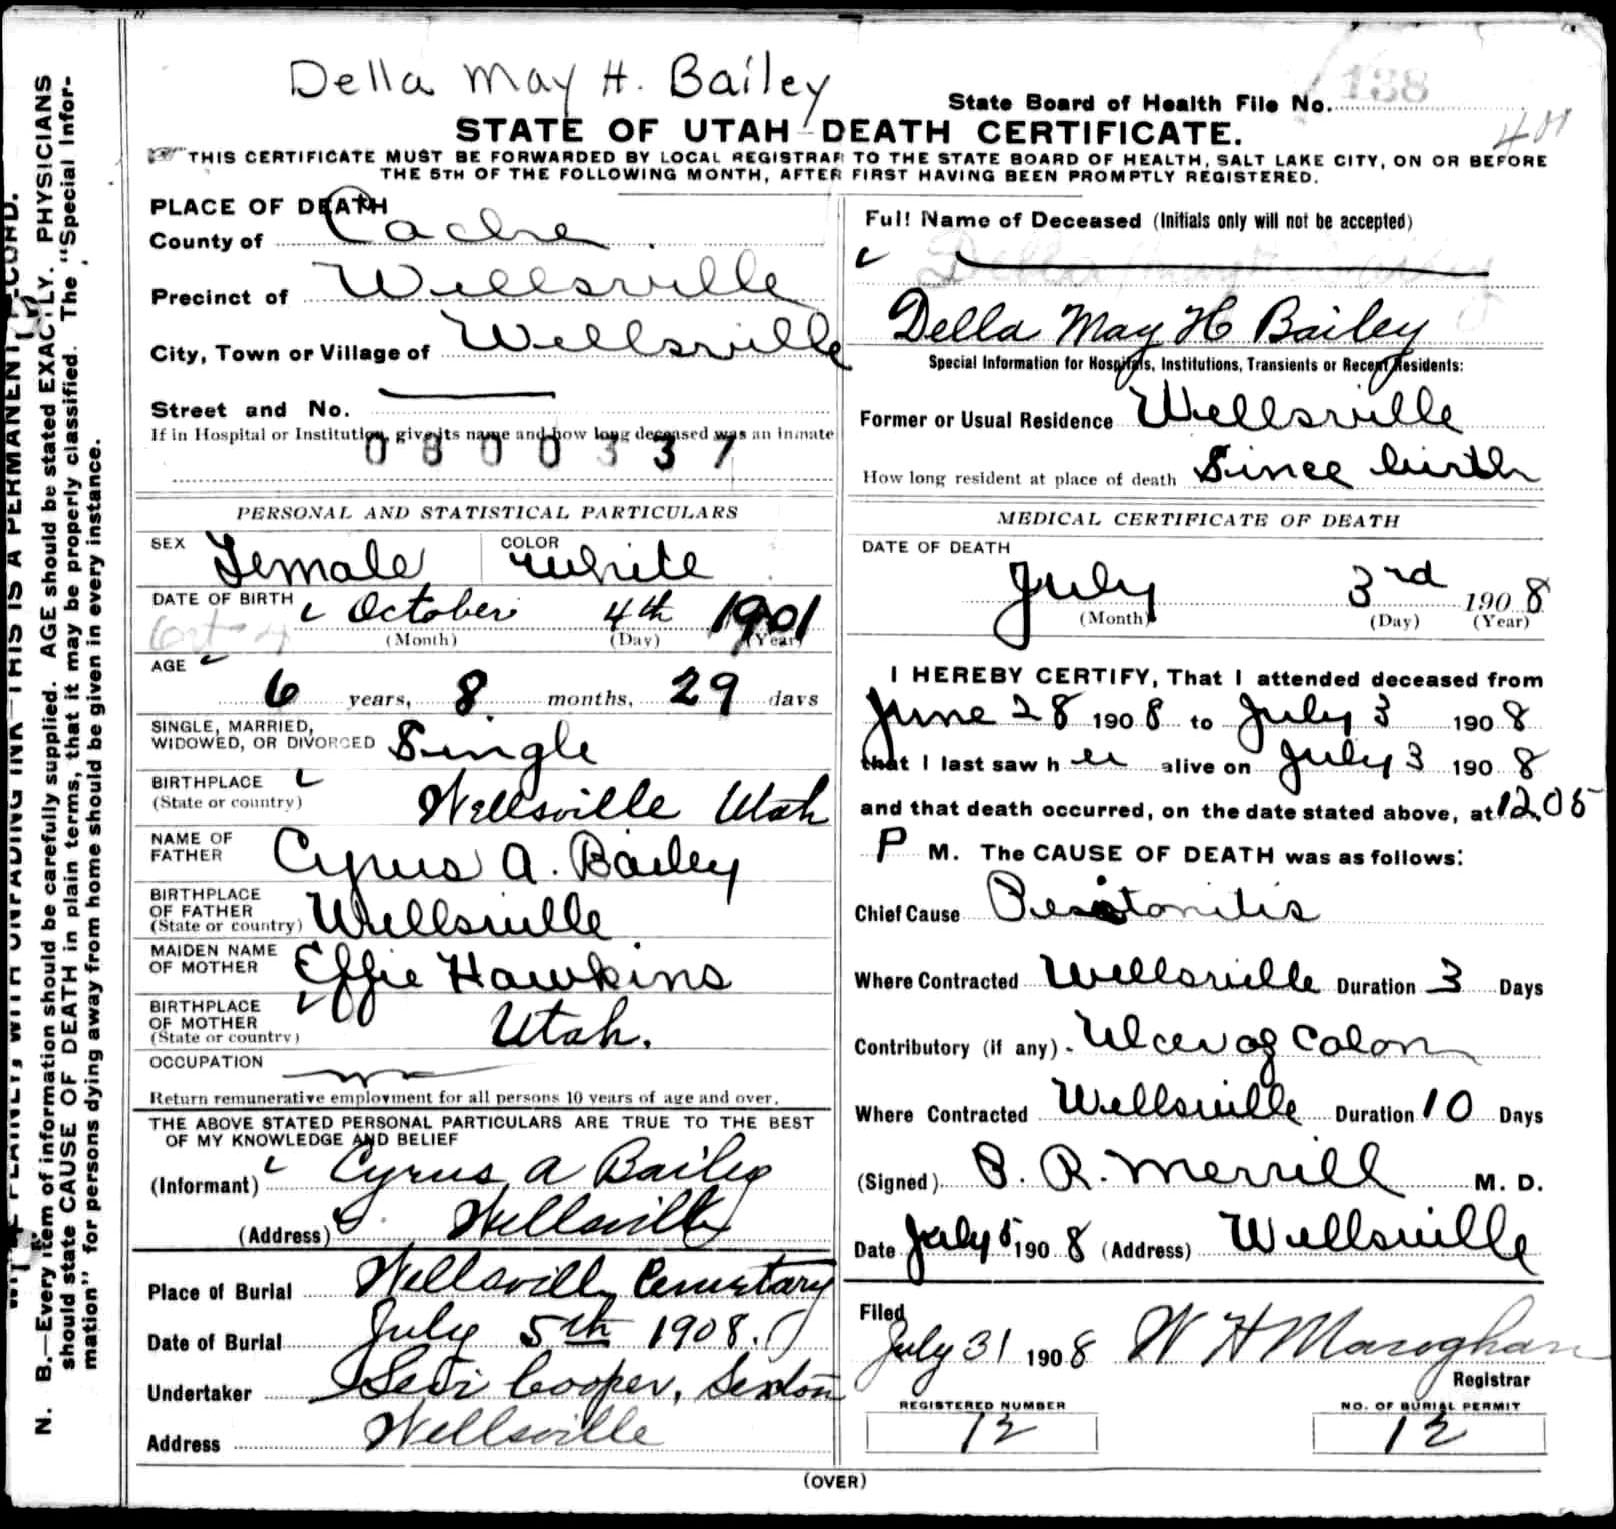 Della May H. Bailey
State Board of Health File No. 138
STATE OF UTAH DEATH CERTIFICATE.
THIS CERTIFICATE MUST BE FORWARDED BY LOCAL REGISTRAR TO THE STATE BOARD OF HEALTH, SALT LAKE CITY, ON OR BEFORE
THE 5TH OF THE FOLLOWING MONTH, AFTER FIRST HAVING BEEN PROMPTLY REGISTERED.
PLACE OF DEATH
County of Cache
Precinct of Wellsville
City, Town or Village of Wellsville
Street and No.
If in Hospital or Institution, give its name and how long deceased was an inmate
0800337
PERSONAL AND STATISTICAL PARTICULARS
SEX Female COLOR White
DATE OF BIRTH October 4th 1901
Oct 4
(Month) (Day) (Year)
AGE
6 years, 8 months, 29 days
SINGLE, MARRIED,
WIDOWED, OR DIVORCED Single
BIRTHPLACE
(State or country) Wellsville Utah
NAME OF
FATHER Cyrus A. Bailey
BIRTHPLACE
OF FATHER
(State or country) Wellsville
MAIDEN NAME
OF MOTHER Effie Hawkins
BIRTHPLACE
OF MOTHER
(State or country) Utah.
OCCUPATION
Return remunerative employment for all persons 10 years of age and over.
THE ABOVE STATED PERSONAL PARTICULARS ARE TRUE TO THE BEST
OF MY KNOWLEDGE AND BELIEF
(Informant) Cyrus A Bailey
(Address) Wellsville
Place of Burial Wellsville Cemetary
Date of Burial July 5th 1908.
Undertaker Levi Cooper, Sexton
Address Wellsville
Full Name of Deceased (Initials only will not be accepted)
Della May H Bailey
Special Information for Hospitals, Institutions, Transients or Recent Residents:
Former or Usual Residence Wellsville
How long resident at place of death Since birth
MEDICAL CERTIFICATE OF DEATH
DATE OF DEATH
July 3rd 1908
(Month) (Day) (Year)
I HEREBY CERTIFY, That I attended deceased from
June 28 1908 to July 3 1908
that I last saw her alive on July 3 1908
and that death occurred, on the date stated above, at 12.05
P M. The CAUSE OF DEATH was as follows:
Chief Cause Peritonitis
Where Contracted Wellsville Duration 3 Days
Contributory (if any) Ulcer of Colon
Where Contracted Wellsville Duration 10 Days
(Signed) P. R. Merrill M. D.
Date July 5 1908 (Address) Wellsville
Filed
July 31 1908 W H Maughan
Registrar
REGISTERED NUMBER
12
NO. OF BURIAL PERMIT
12
(OVER)
N. B.—Every item of information should be carefully supplied. AGE should be stated EXACTLY. PHYSICIANS
should state CAUSE OF DEATH in plain terms, that it may be properly classified. The "Special Infor-
mation" for persons dying away from home should be given in every instance.
WITH UNFADING INK—THIS IS A PERMANENT